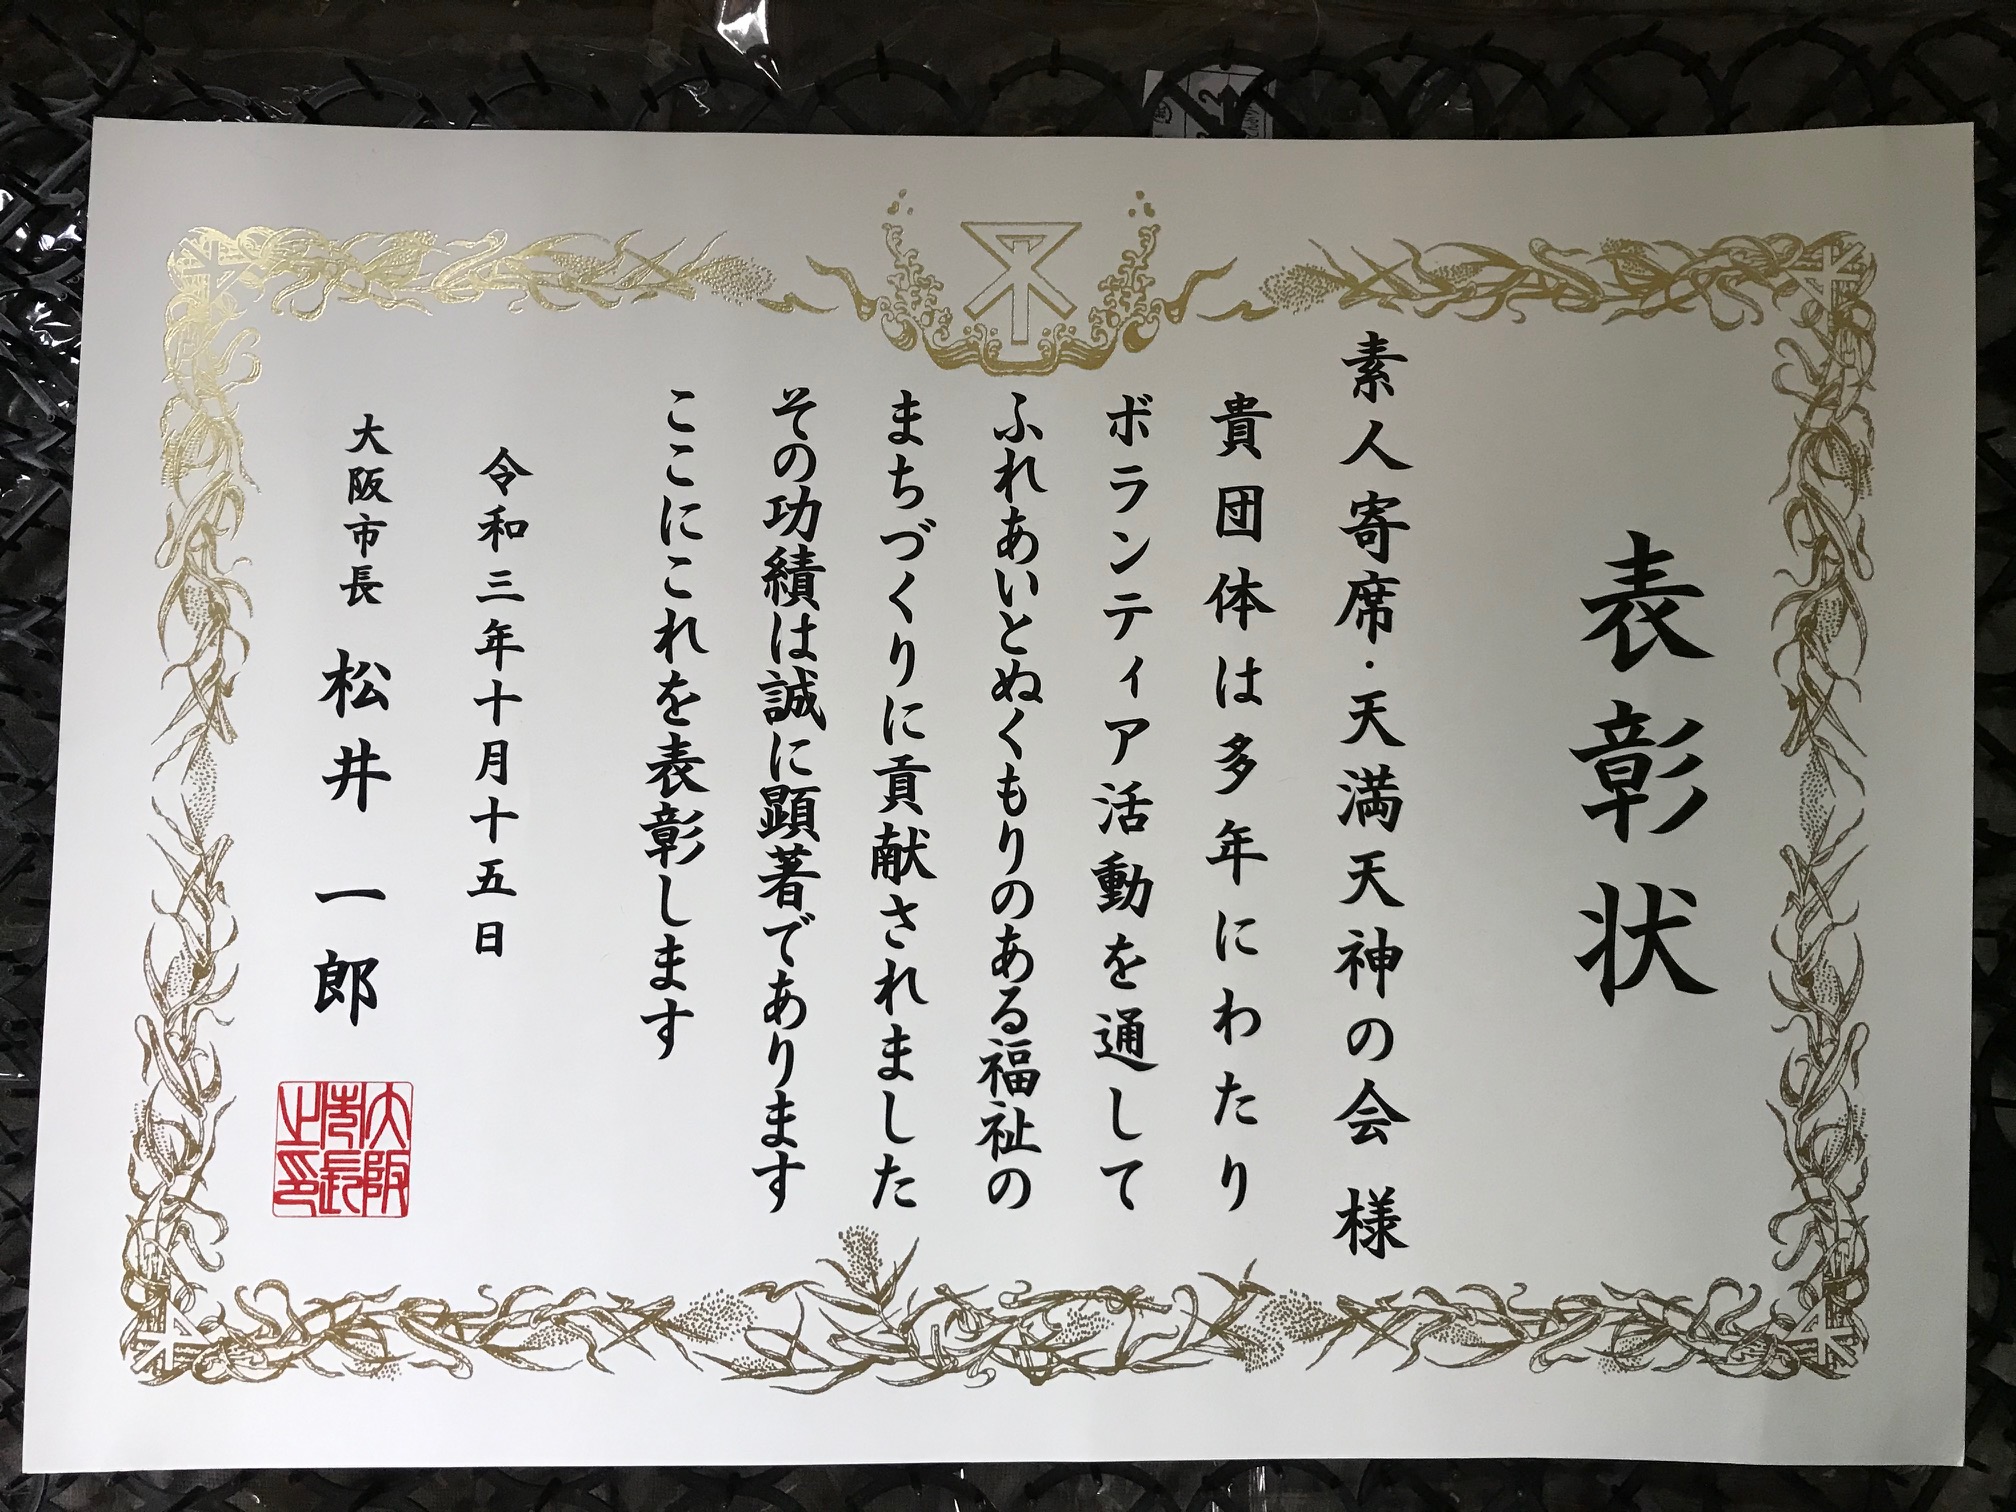 表彰状
素人寄席・天満天神の会 様
貴団体は多年にわたり
ボランティア活動を通して
ふれあいとぬくもりのある福祉の
まちづくりに貢献されました
その功績は誠に顕著であります
ここにこれを表彰します
令和三年十月十五日
大阪市長 松井一郎
大阪市長之印